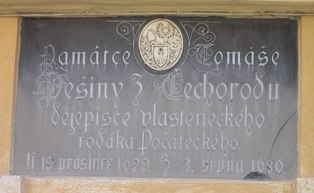 Památce Tomáše
Pešiny z Čechorodu
dějepisce vlasteneckého,
rodáka Počáteckého.
N. 19. prosince 1629. Z. 3. srpna 1680.